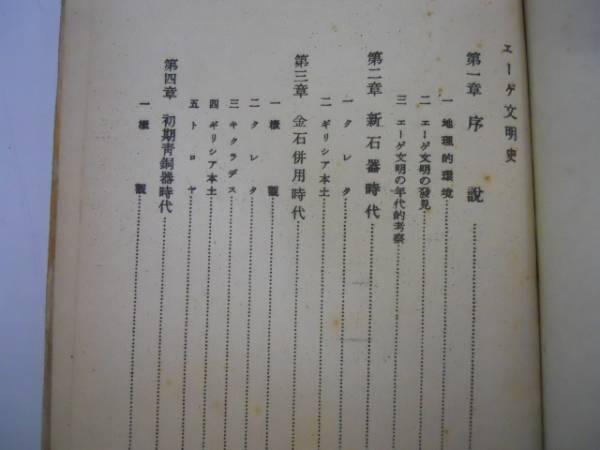 エーゲ文明史
第一章 序 說
一 地理的環境
二 エーゲ文明の發見
三 エーゲ文明の年代的考察
第二章 新石器時代
一 クレタ
二 ギリシア本土
第三章 金石併用時代
一 槪觀
二 クレタ
三 キクラデス
四 ギリシア本土
五 トロヤ
第四章 初期靑銅器時代
一 槪觀